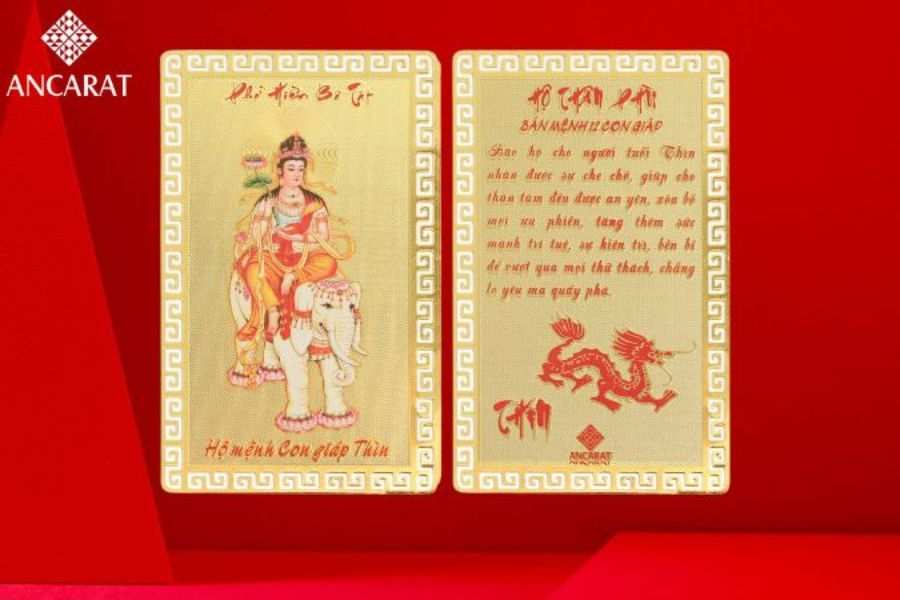 ANCARAT
Phổ Hiền Bồ Tát
Hộ mệnh Con giáp Thìn
HỘ THÂN PHÙ
BẢN MỆNH 12 CON GIÁP
Bảo hộ cho người tuổi Thìn
nhận được sự che chở, giúp cho
thân tâm đều được an yên, xóa bỏ
mọi ưu phiền, tăng thêm sức
mạnh trí tuệ, sự kiên trì, bền bỉ
để vượt qua mọi thử thách, chẳng
lo yêu ma quấy phá.
Thìn
ANCARAT